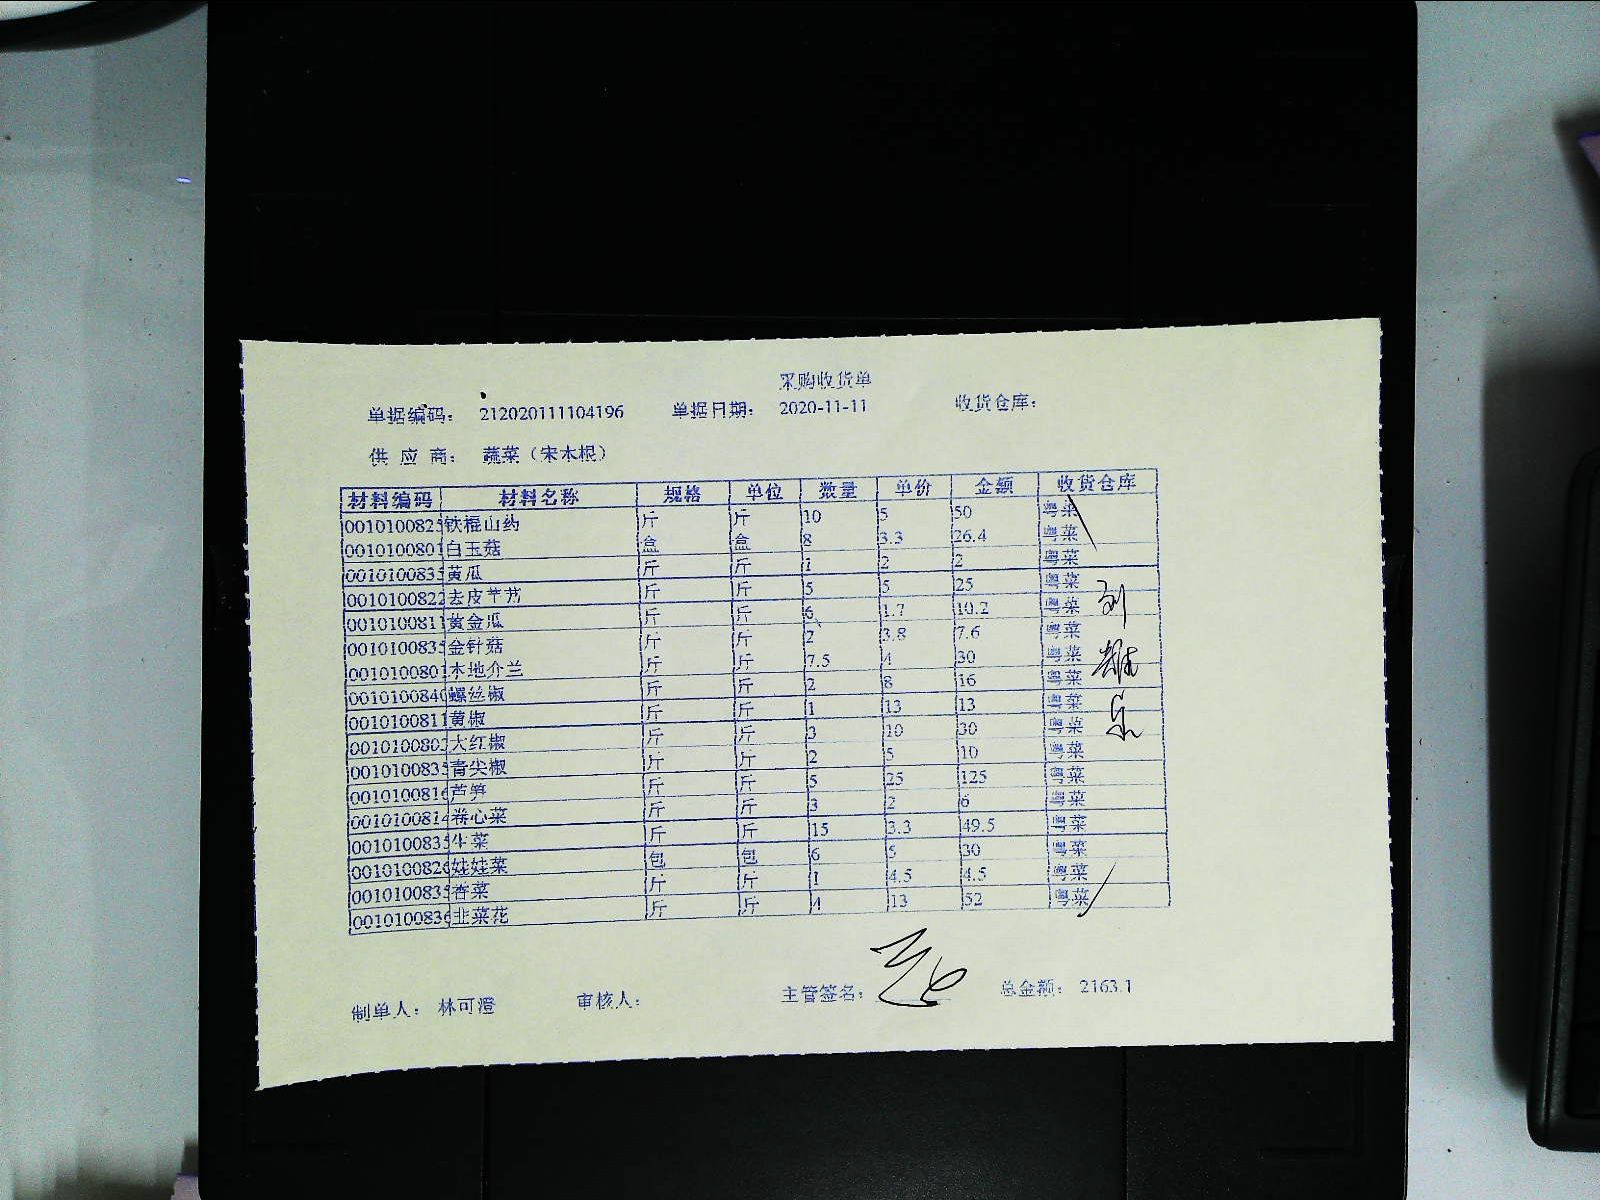 采购收货单
单据编码： 212020111104196 单据日期： 2020-11-11 收货仓库：
供 应 商： 蔬菜（宋木根）
材料编码 材料名称 规格 单位 数量 单价 金额 收货仓库
0010100825 铁棍山药 斤 斤 10 5 50 粤菜
001010080 白玉菇 盒 盒 8 3.3 26.4 粤菜
001010083 黄瓜 斤 斤 1 2 2 粤菜
0010100822 去皮芋艿 斤 斤 5 5 25 粤菜
001010081 黄金瓜 斤 斤 6 1.7 10.2 粤菜
001010083 金针菇 斤 斤 2 3.8 7.6 粤菜
001010080 本地介兰 斤 斤 7.5 4 30 粤菜
001010084 螺丝椒 斤 斤 2 8 16 粤菜
001010081 黄椒 斤 斤 1 13 13 粤菜
001010080 大红椒 斤 斤 3 10 30 粤菜
001010083 青尖椒 斤 斤 2 5 10 粤菜
001010081 芦笋 斤 斤 5 25 125 粤菜
001010081 卷心菜 斤 斤 3 2 6 粤菜
001010083 生菜 斤 斤 15 3.3 49.5 粤菜
001010082 娃娃菜 包 包 6 5 30 粤菜
001010083 香菜 斤 斤 1 4.5 4.5 粤菜
001010083 韭菜花 斤 斤 4 13 52 粤菜
制单人： 林可澄 审核人： 主管签名： 总金额： 2163.1